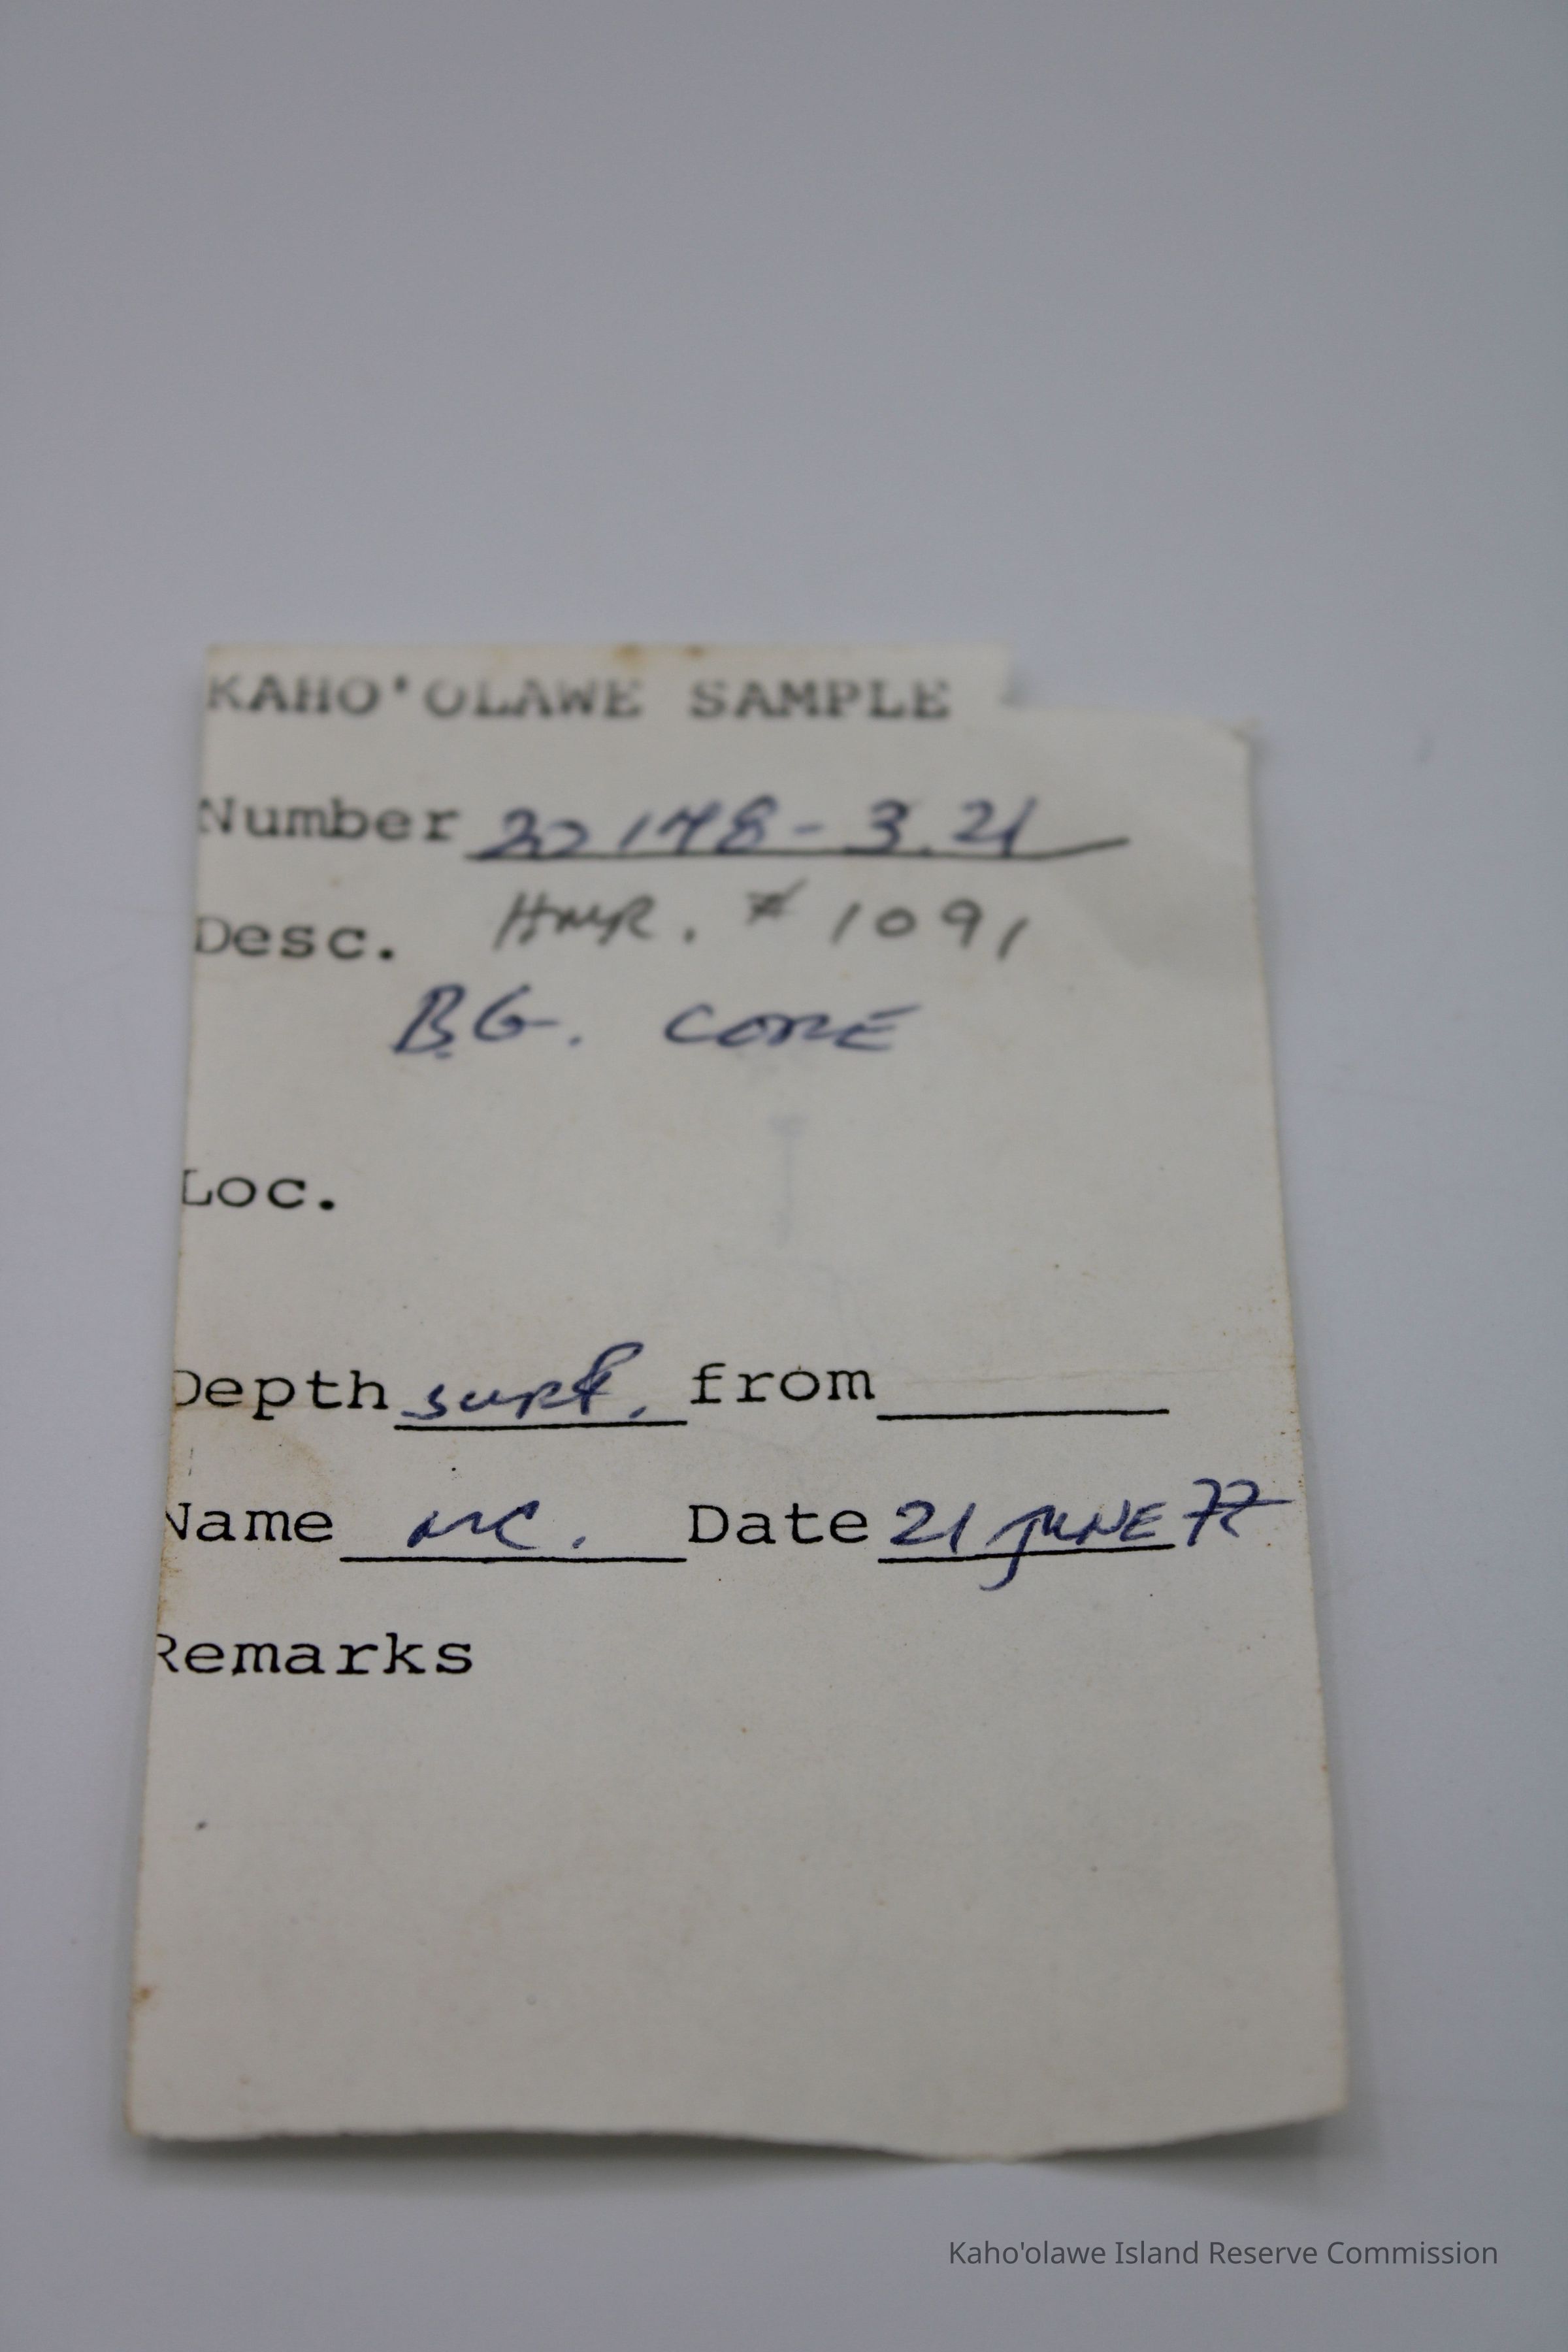 KAHO'OLAWE SAMPLE
Number 20148-3.21
Desc. HMR. # 1091
B.G. CORE
Loc.
Depth surf. from
Name MC. Date 21 JUNE 77
Remarks
Kaho'olawe Island Reserve Commission